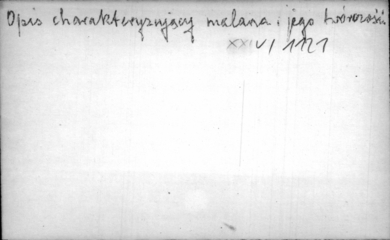 Opis charakteryzujący malarza i jego twórczości
XXIVI 1121